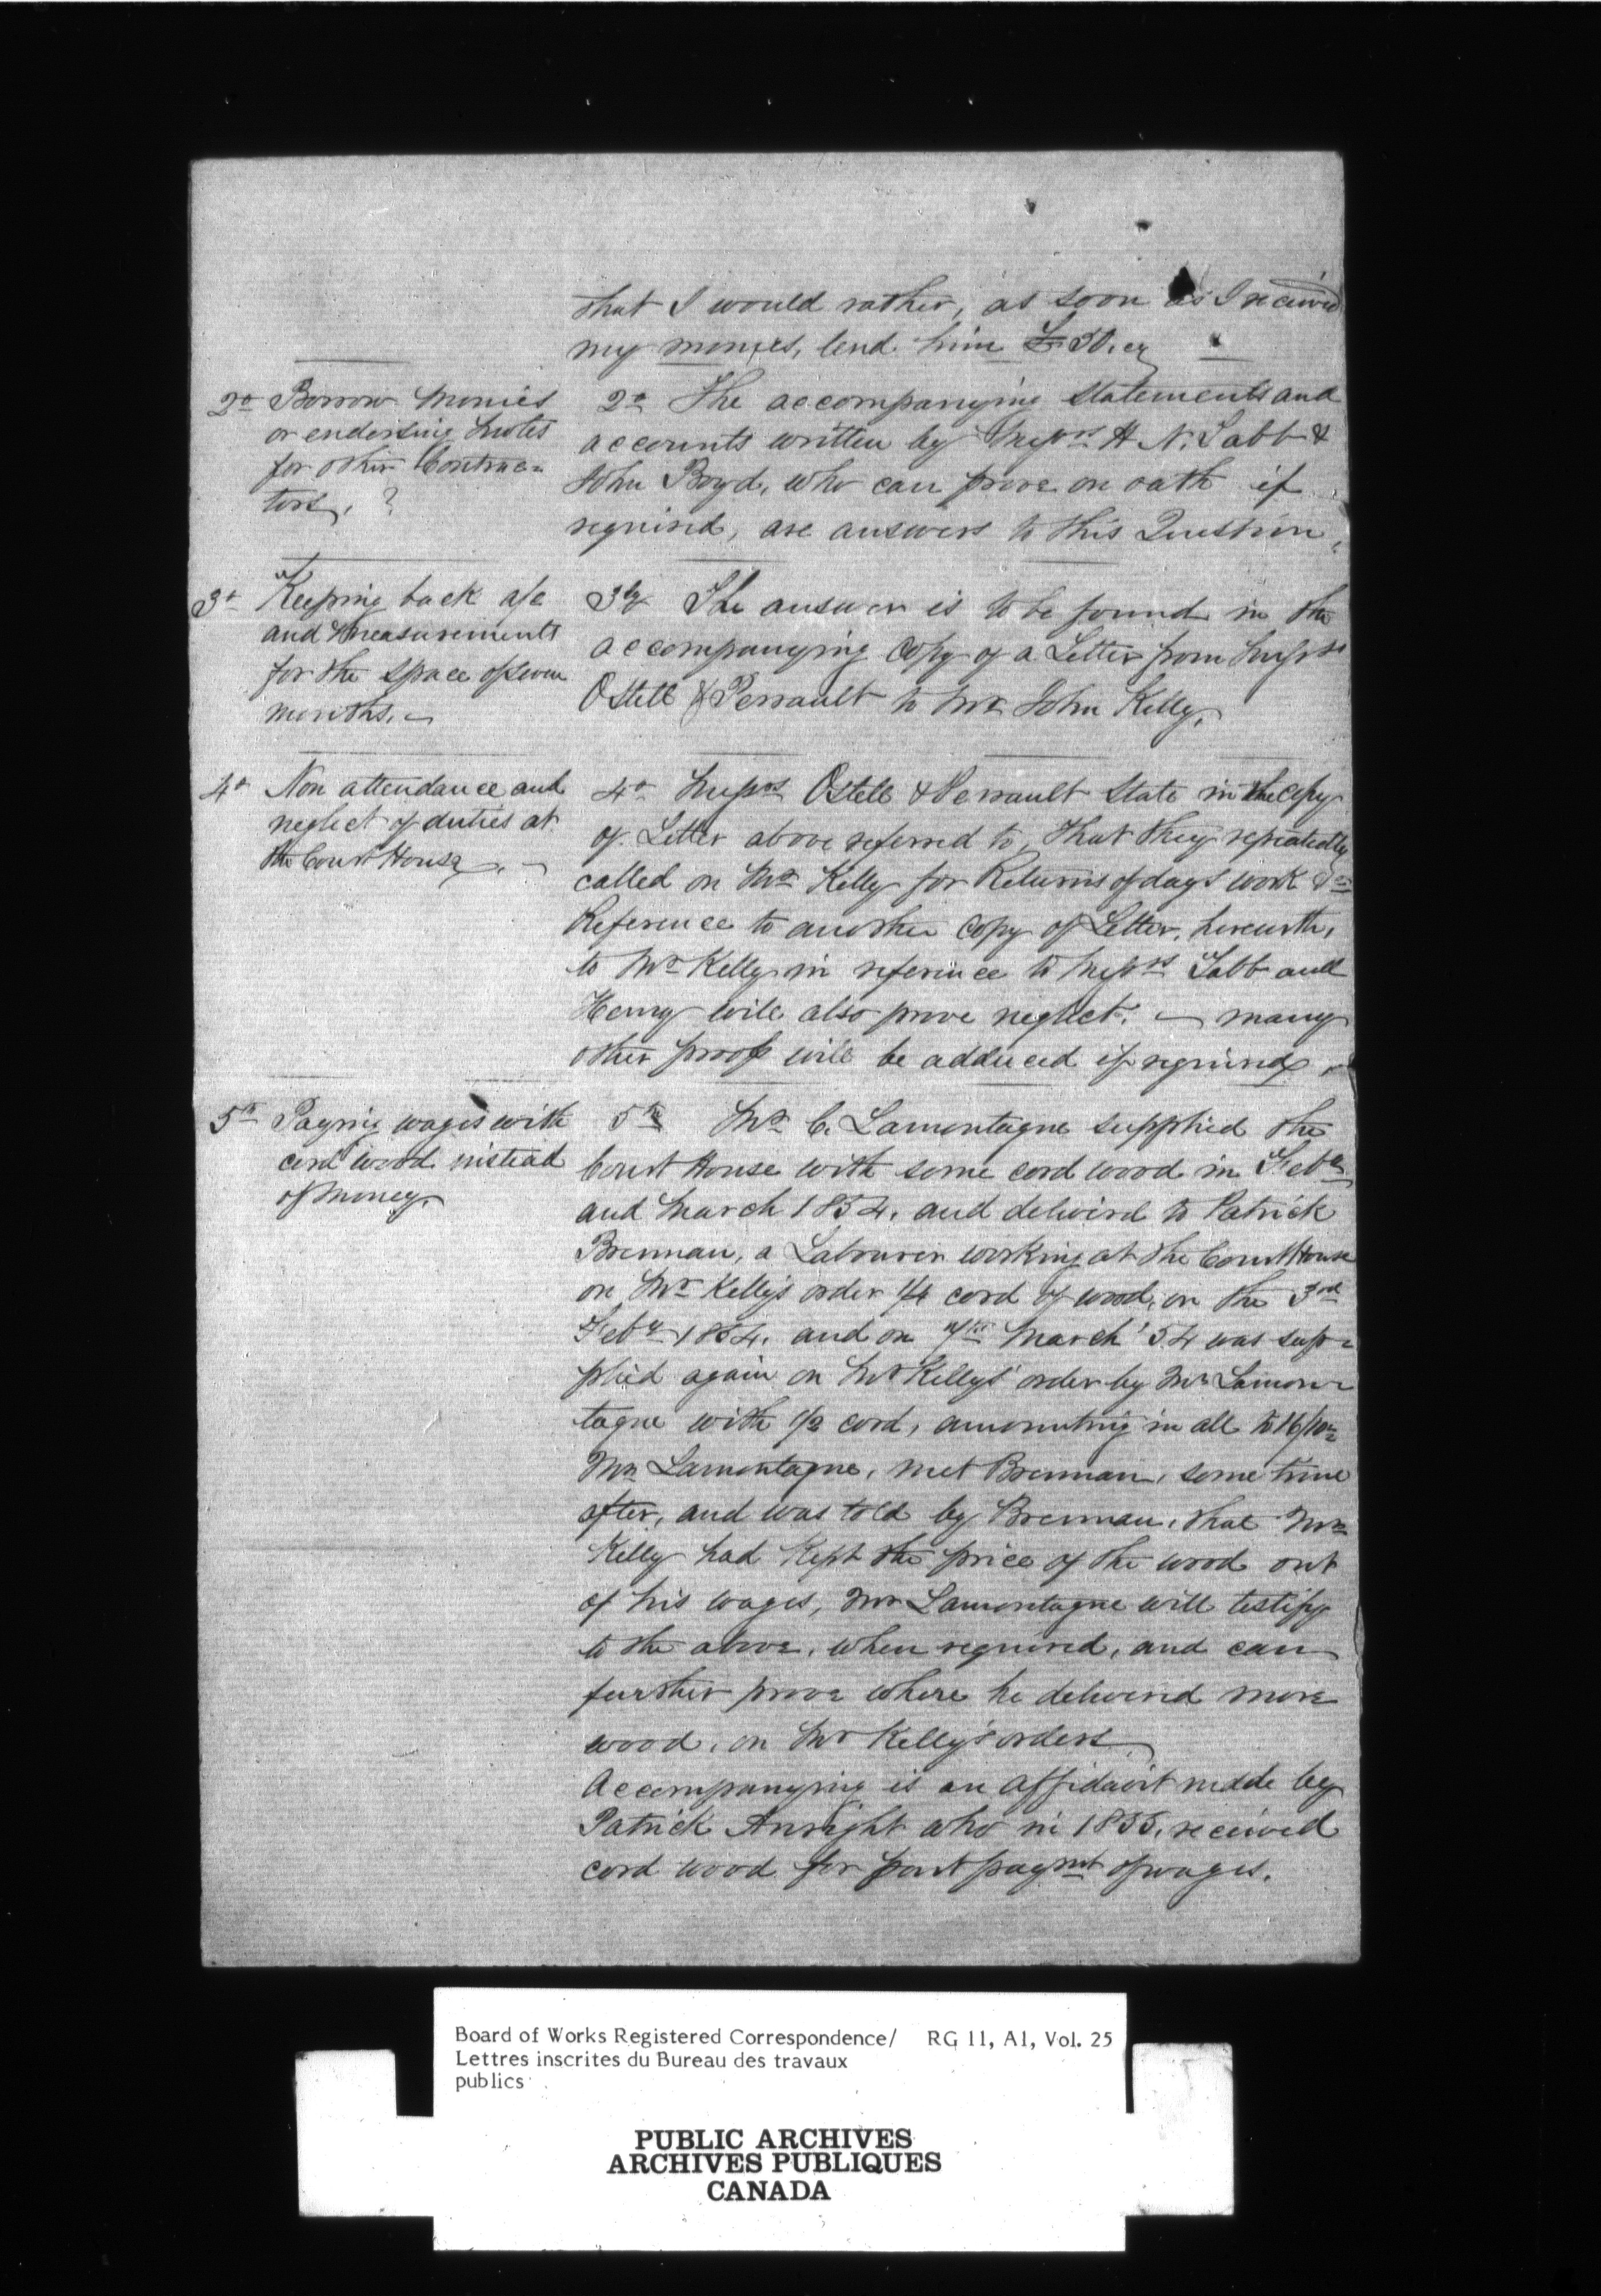 that I would rather, as soon as I received
my monies, lend him £30.
2o Borrow monies
or endorsing notes
for other Contrac=
tors. ?
2o The accompanying statements and
accounts written by Messrs H. N. Tabb &
John Boyd, who can prove on oath if
required, are answers to this Question.
3o Keeping back a/c
and Measurements
for the space of seven
months. —
3ly The answer is to be found in the
accompanying Copy of a Letter from Messrs
Ostell & Perrault to Mr John Kelly.
4o Non attendance and
neglect of duties at
the Court House. —
4o Messrs Ostell & Perrault State in the Copy
of Letter above referred to, that they repeatedly
called on Mr Kelly for Returns of days work &c
Reference to another Copy of Letter, herewith,
to Mr Kelly in reference to Messrs Tabb and
Henry will also prove neglect. — many
other proofs will be adduced if required.
5o Paying wages with
cord wood instead
of money.
5th Mr C. Lamontagne supplied the
Court House with some cord wood in Feby
and March 1854. and deliverd to Patrick
Brennan, a Labourer working at the Court House
on Mr Kelly's order 1/4 cord of wood, on the 3rd
Feby 1854. and on 7th March '54 was sup=
plied again on Mr Kellys' order by Mr Lamon=
tagne with 1/2 cord, amounting in all to 16/10=
Mr Lamontagne, met Brennan, some time
after, and was told by Brennan, that Mr
Kelly had Kept the price of the wood out
of his wages, Mr Lamontagne will testify
to the above, when required, and can
further prove where he deliverd more
wood, on Mr Kelly's orders
Accompanying is an Affidavit made by
Patrick Anright who in 1855, received
cord wood for part paymt of wages.
Board of Works Registered Correspondence/ RG 11, A1, Vol. 25
Lettres inscrites du Bureau des travaux
publics
PUBLIC ARCHIVES
ARCHIVES PUBLIQUES
CANADA